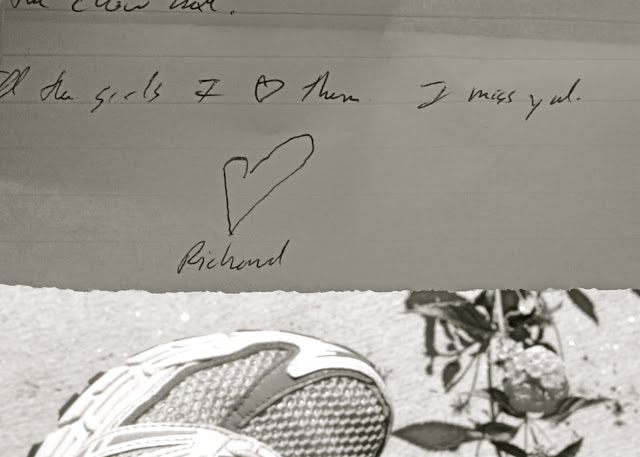 the girls I ♡ them. I miss you.
Richard